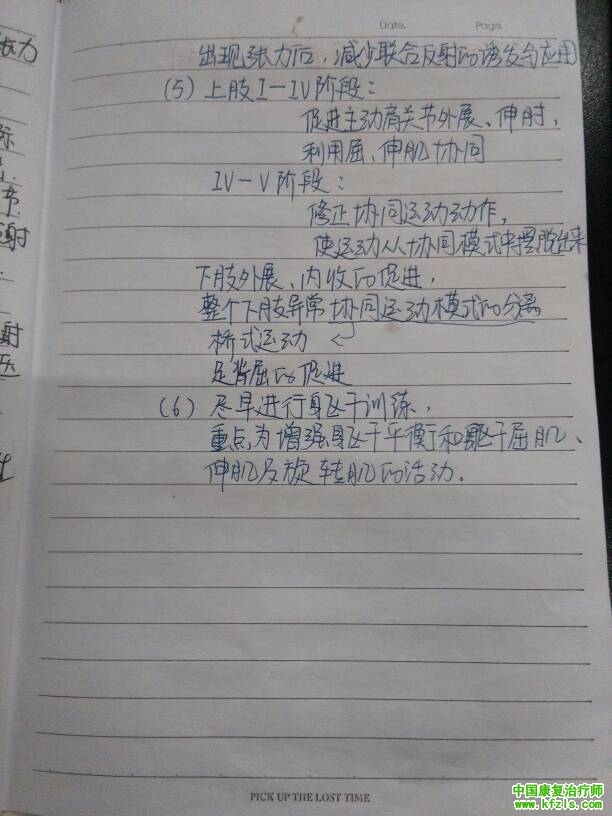 Date.
Page.
出现张力后，减少联合反射的诱发与应用
(5) 上肢I-IV阶段：
促进主动肩关节外展、伸肘，
利用屈、伸肌协同
IV-V阶段：
修正协同运动动作，
使运动从协同模式中摆脱出来
下肢外展、内收的促进，
整个下肢异常协同运动模式的分离
桥式运动 ←
足背屈的促进
(6) 尽早进行躯干训练，
重点为增强躯干平衡和躯干屈肌、
伸肌及旋转肌的活动.
张力
射
射
压
PICK UP THE LOST TIME
中国康复治疗师
www.kfzls.com